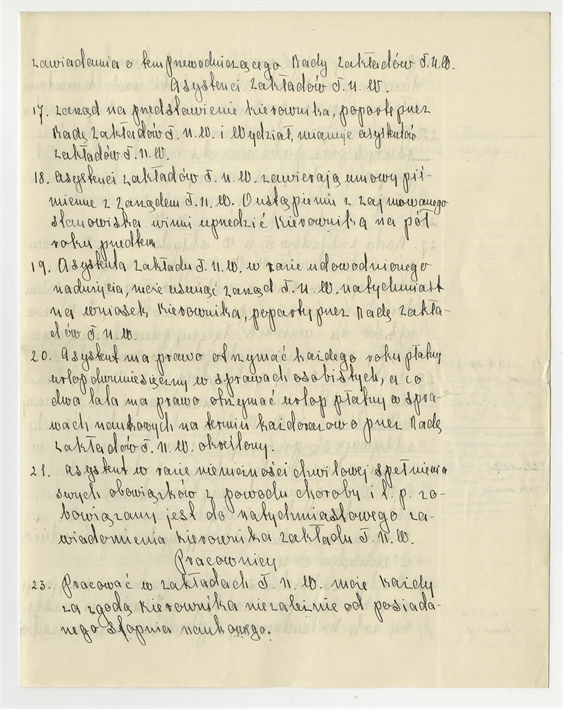 zawiadamia o tem przewodniczącego Rady Zakładów T.N.W.
Asystenci Zakładów T.N.W.
17. Zarząd na przedstawienie Kierownika, poparte przez
Radę Zakładów T.N.W. i Wydział, mianuje asystentów
Zakładów T.N.W.
18. Asystenci Zakładów T.N.W. zawierają umowy piś-
mienne z Zarządem T.N.W. O ustąpieniu z zajmowanego
stanowiska winni uprzedzić Kierownika na pół
roku przedtem.
19. Asystenta Zakładu T.N.W. w razie udowodnionego
nadużycia, może usunąć Zarząd T.N.W. natychmiast
na wniosek Kierownika, poparty przez Radę Zakła-
dów T.N.W.
20. Asystent ma prawo otrzymać każdego roku płatny
urlop dwumiesięczny w sprawach osobistych, a co
dwa lata ma prawo otrzymać urlop płatny w spra-
wach naukowych na termin każdorazowo przez Radę
Zakładów T.N.W. określony.
21. Asystent w razie niemożności chwilowej spełnienia
swych obowiązków z powodu choroby i t.p. zo-
bowiązany jest do natychmiastowego za-
wiadomienia Kierownika Zakładu T.N.W.
Pracownicy
23. Pracować w Zakładach T.N.W. może każdy
za zgodą Kierownika niezależnie od posiada-
nego stopnia naukowego.